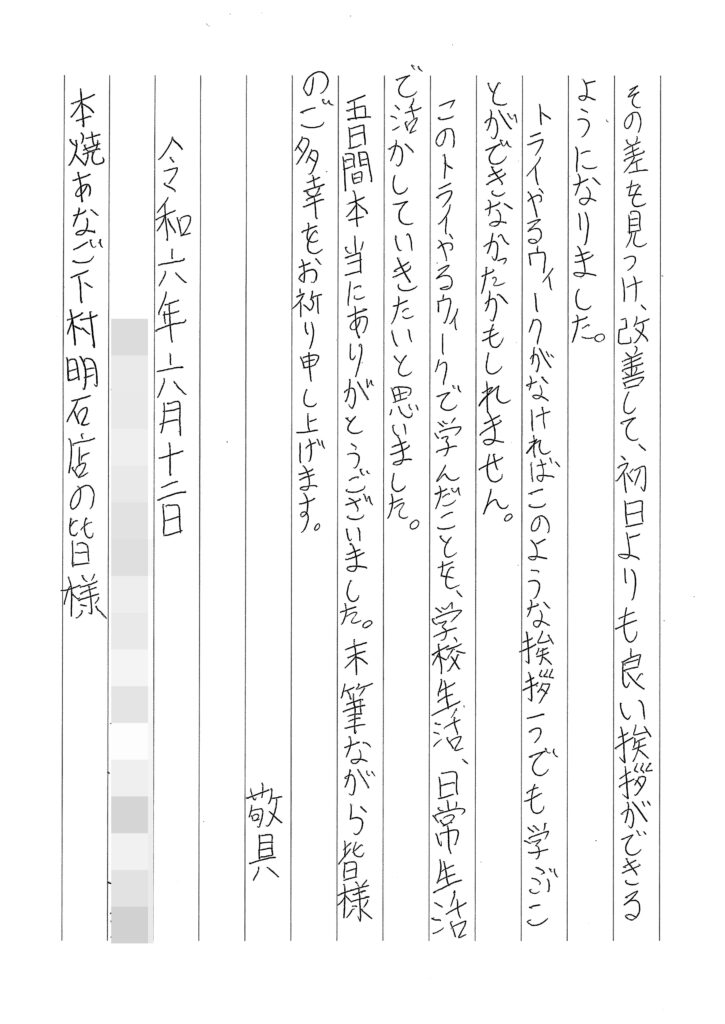 その差を見つけ、改善して、初日よりも良い挨拶ができる
ようになりました。
トライやるウィークがなければこのような挨拶1つでも学ぶこ
とができなかったかもしれません。
このトライやるウィークで学んだことを、学校生活、日常生活
で活かしていきたいと思いました。
五日間本当にありがとうございました。末筆ながら皆様
のご多幸をお祈り申し上げます。
敬具
令和六年六月十二日
本焼あなご下村明石店の皆様